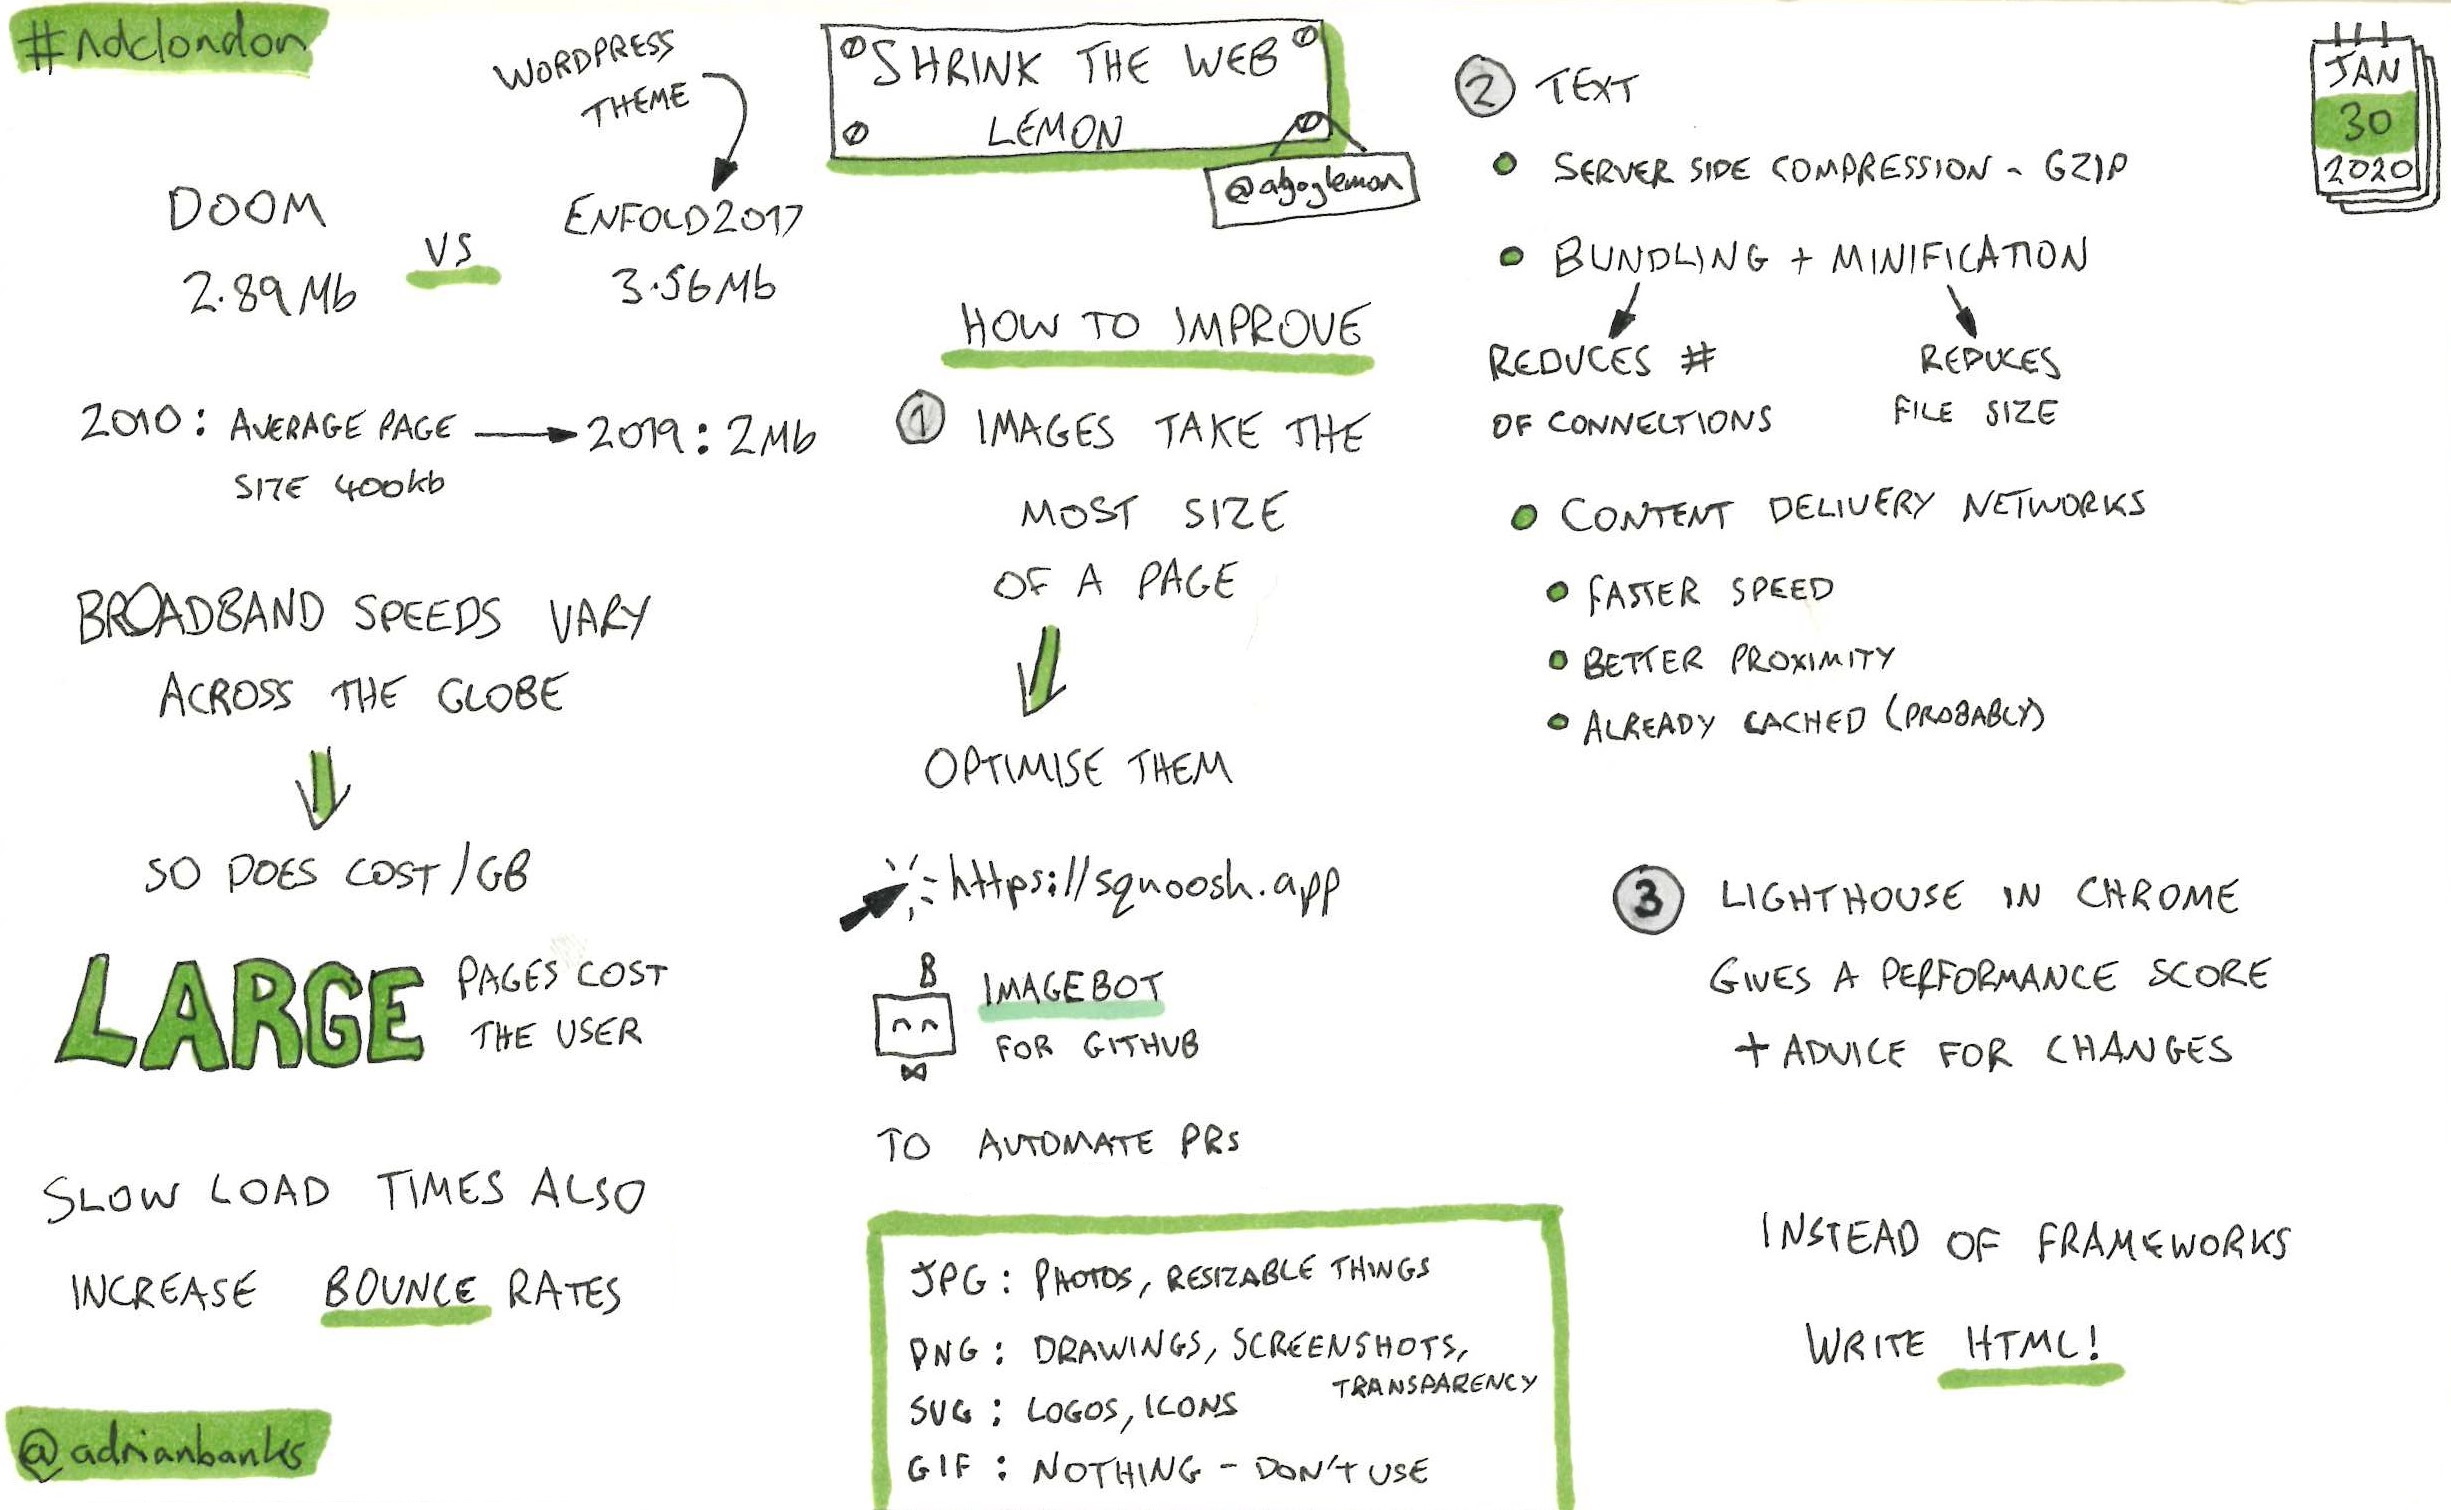 #ndclondon
WORDPRESS
THEME
DOOM
2.89Mb
VS
ENFOLD2017
3.56Mb
2010: AVERAGE PAGE
SIZE 400kb
2019: 2Mb
BROADBAND SPEEDS VARY
ACROSS THE GLOBE
SO DOES COST/GB
LARGE PAGES COST
THE USER
SLOW LOAD TIMES ALSO
INCREASE BOUNCE RATES
@adrianbanks
SHRINK THE WEB
LEMON
HOW TO IMPROVE
1 IMAGES TAKE THE
MOST SIZE
OF A PAGE
OPTIMISE THEM
https://squoosh.app
IMAGEBOT
FOR GITHUB
TO AUTOMATE PRs
JPG: PHOTOS, RESIZABLE THINGS
PNG: DRAWINGS, SCREENSHOTS,
TRANSPARENCY
SVG: LOGOS, ICONS
GIF: NOTHING - DON'T USE
2 TEXT
SERVER SIDE COMPRESSION - GZIP
BUNDLING + MINIFICATION
REDUCES #
OF CONNECTIONS
REDUCES
FILE SIZE
CONTENT DELIVERY NETWORKS
FASTER SPEED
BETTER PROXIMITY
ALREADY CACHED (PROBABLY)
3 LIGHTHOUSE IN CHROME
GIVES A PERFORMANCE SCORE
+ ADVICE FOR CHANGES
INSTEAD OF FRAMEWORKS
WRITE HTML!
JAN
30
2020